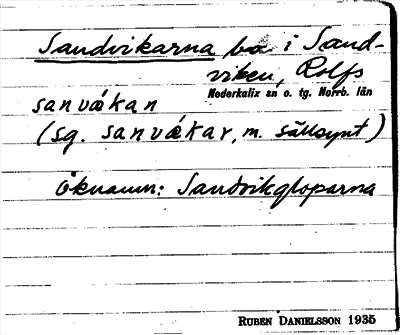 Sandvikarna bа i Sand-
viken, Rolfs
Nederkalix sn o. tg. Norrb. län
sanvǽkan
(sg. sanvǽkar, m. sällsynt)
öknamn: Sandvikgloparna
RUBEN DANIELSSON 1935